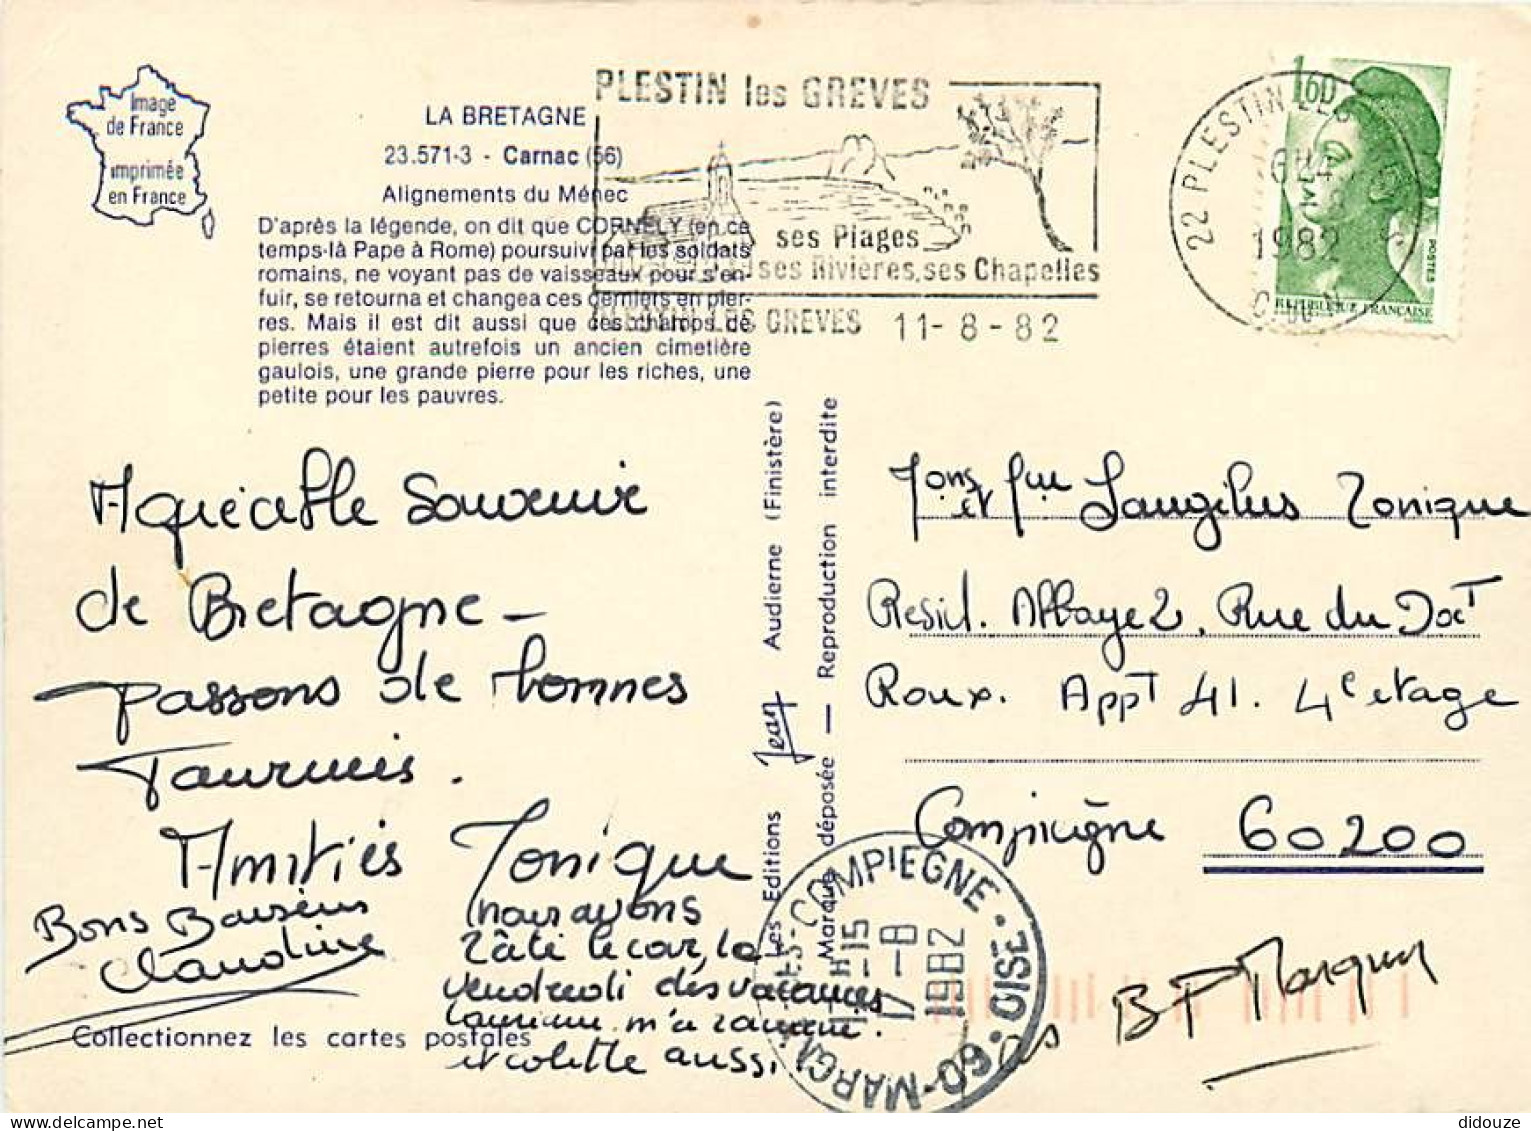 Image
de France
imprimée
en France
LA BRETAGNE
23.571-3 - Carnac (56)
Alignements du Ménec
D'après la légende, on dit que CORNELY (en ce
temps-là Pape à Rome) poursuivi par les soldats
romains, ne voyant pas de vaisseaux pour s'en-
fuir, se retourna et changea ces derniers en pier-
res. Mais il est dit aussi que ces champs de
pierres étaient autrefois un ancien cimetière
gaulois, une grande pierre pour les riches, une
petite pour les pauvres.
PLESTIN les GREVES
ses Plages
ses Rivières, ses Chapelles
PLESTIN LES GREVES 11-8-82
22 PLESTIN LES
1982
1,60
POSTES
REPUBLIQUE FRANÇAISE
Agréable Souvenir
de Bretagne -
passons de bonnes
Amitiés Monique
Bons Baisers
Claudine
nous avons
râté le car, le
vendredi des vacances
m'a ramené.
et colette aussi
Collectionnez les cartes postales
Les Editions Jean Audierne (Finistère)
Marque déposée — Reproduction interdite
et Monique
Resid. Abbaye 2, Rue du Dct
Roux. Appt 41. 4e etage
Compiègne 60200
MARGNY-LES-COMPIEGNE
17H-15
17-8
1982
60-OISE
BP Marquer
didouze